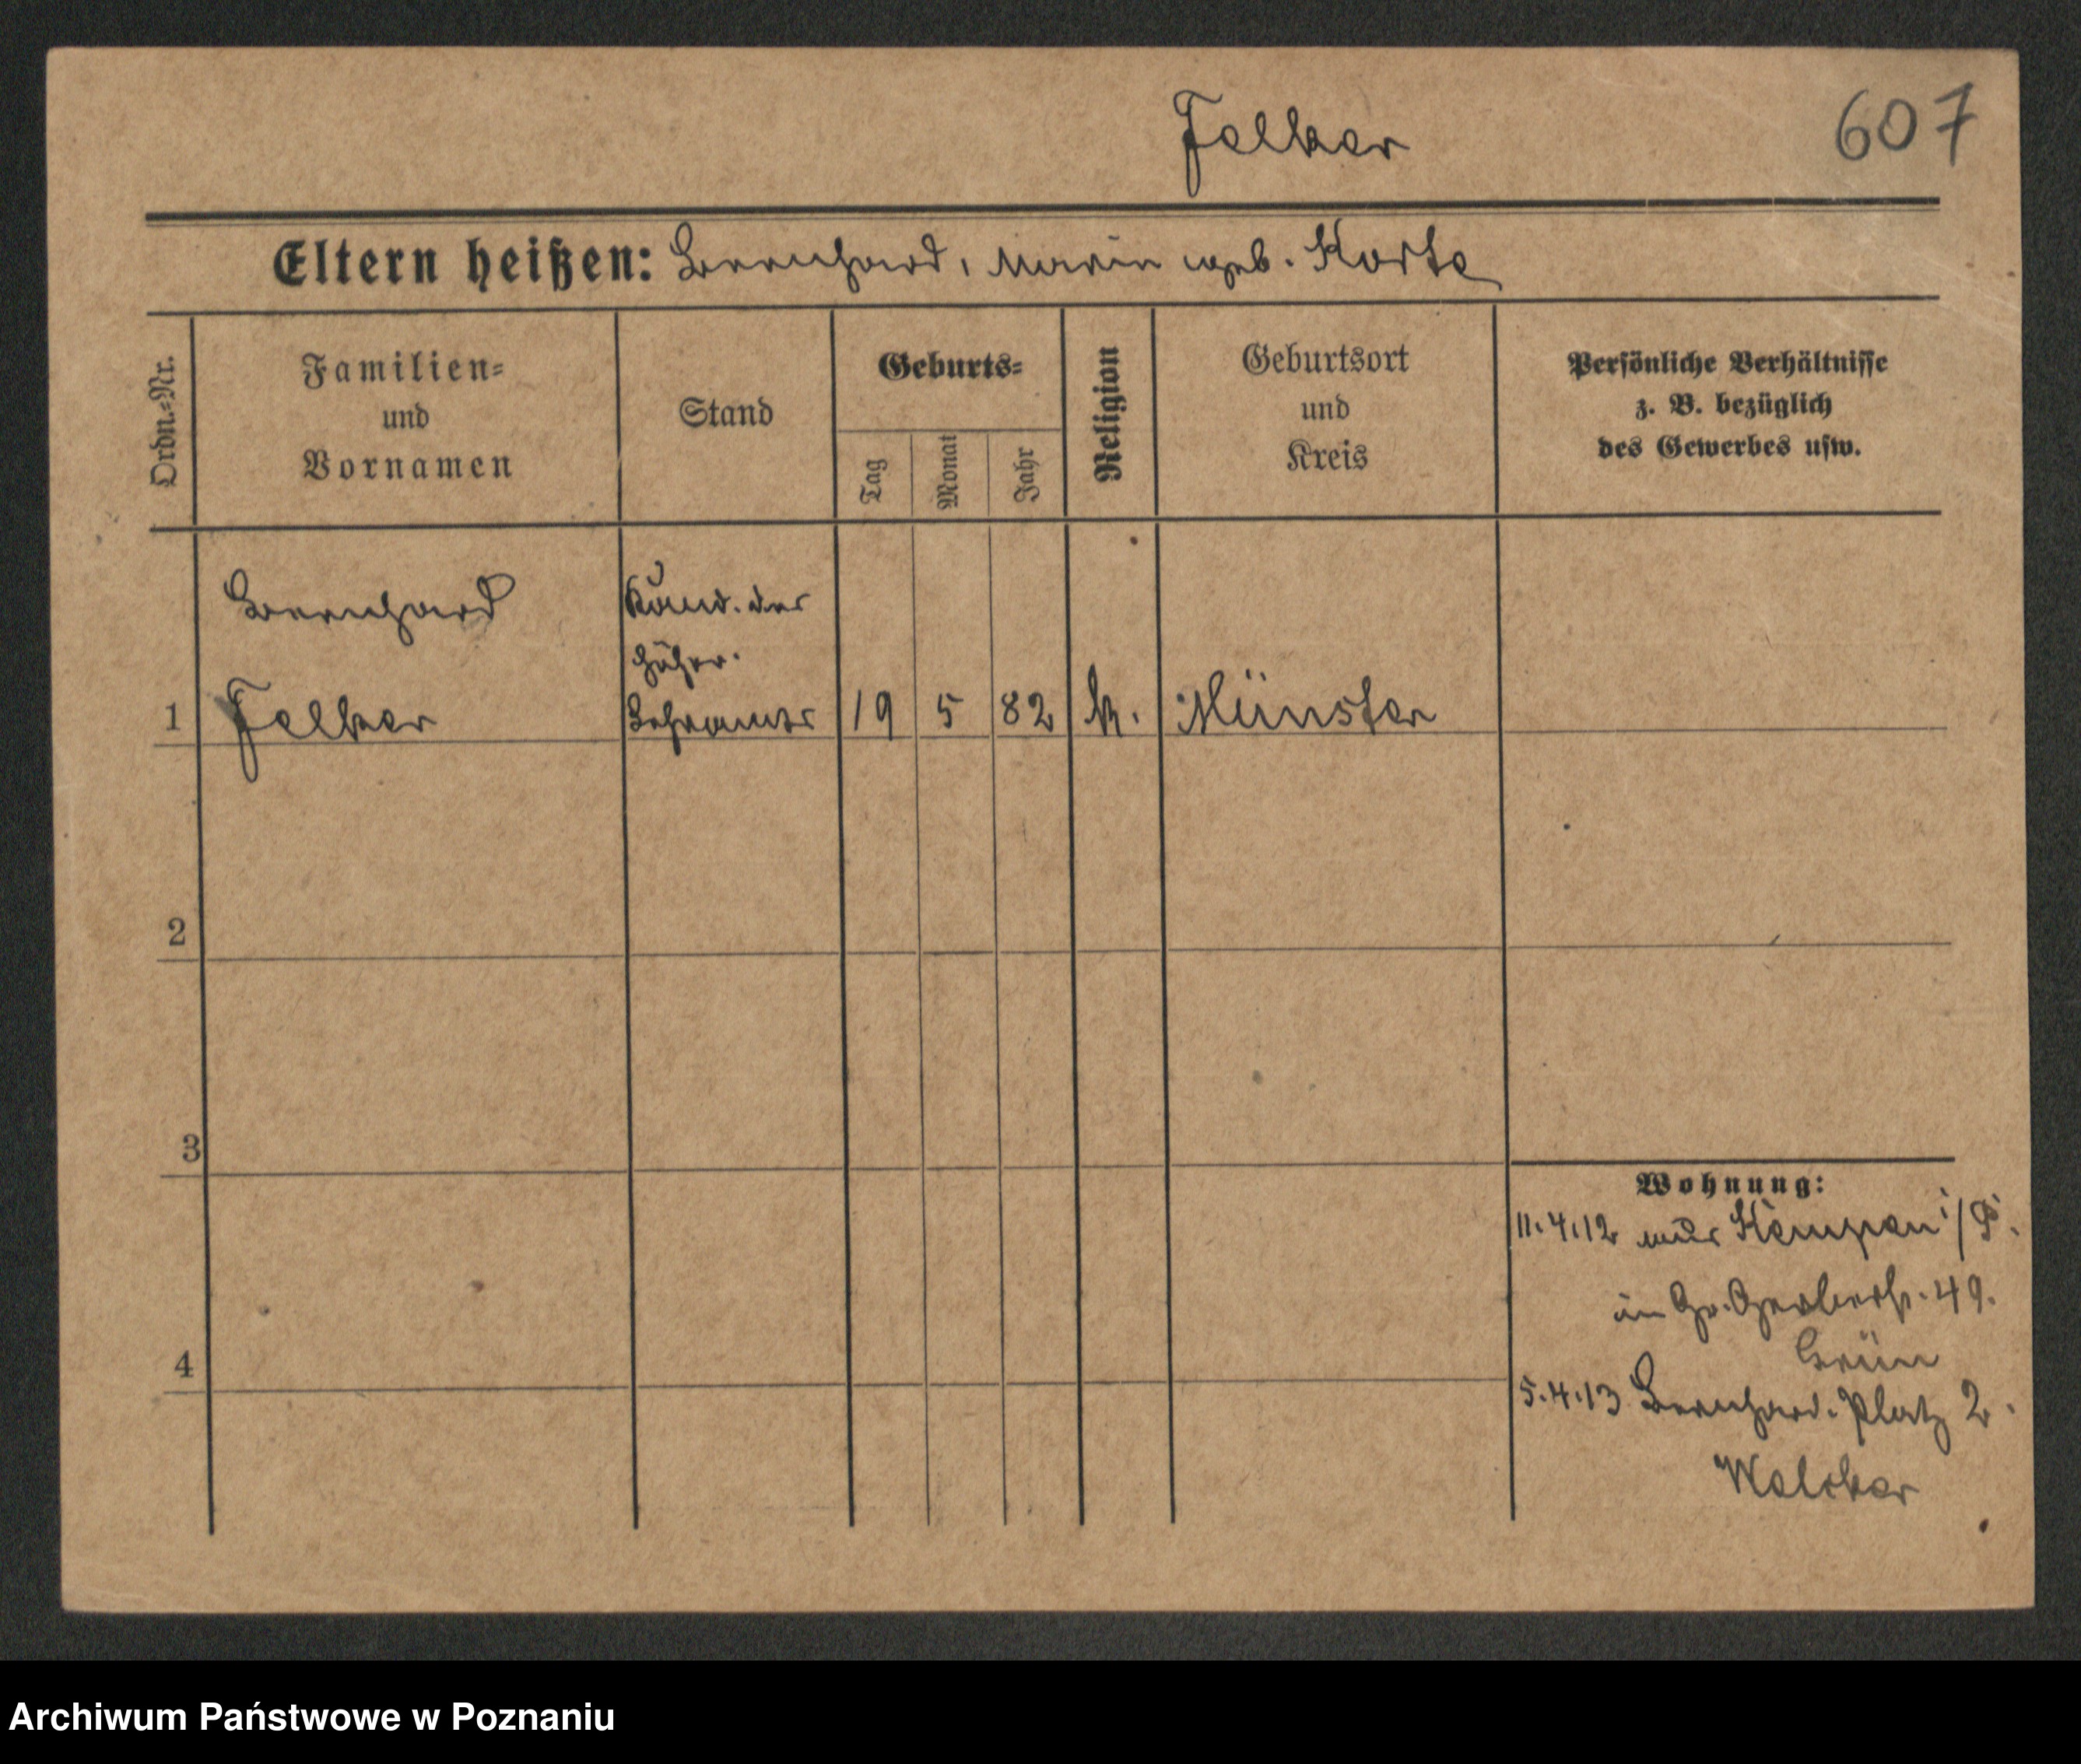 Felker
607
Eltern heißen: Bernhard, Maria geb. Korte
Ordn.-Nr.
Familien-
und
Vornamen
Stand
Geburts-
Tag
Monat
Jahr
Religion
Geburtsort
und
Kreis
Persönliche Verhältnisse
z. B. bezüglich
des Gewerbes usw.
Bernhard
Kand. des
höher.
1 Felker Lehramts 19 5 82 k. Münster
2
3
4
Wohnung:
11.4.12 aus Kempen i/P.
in Gr. Gerberstr. 49.
Grün
5.4.13 Bernhard. Platz 2.
Archiwum Państwowe w Poznaniu